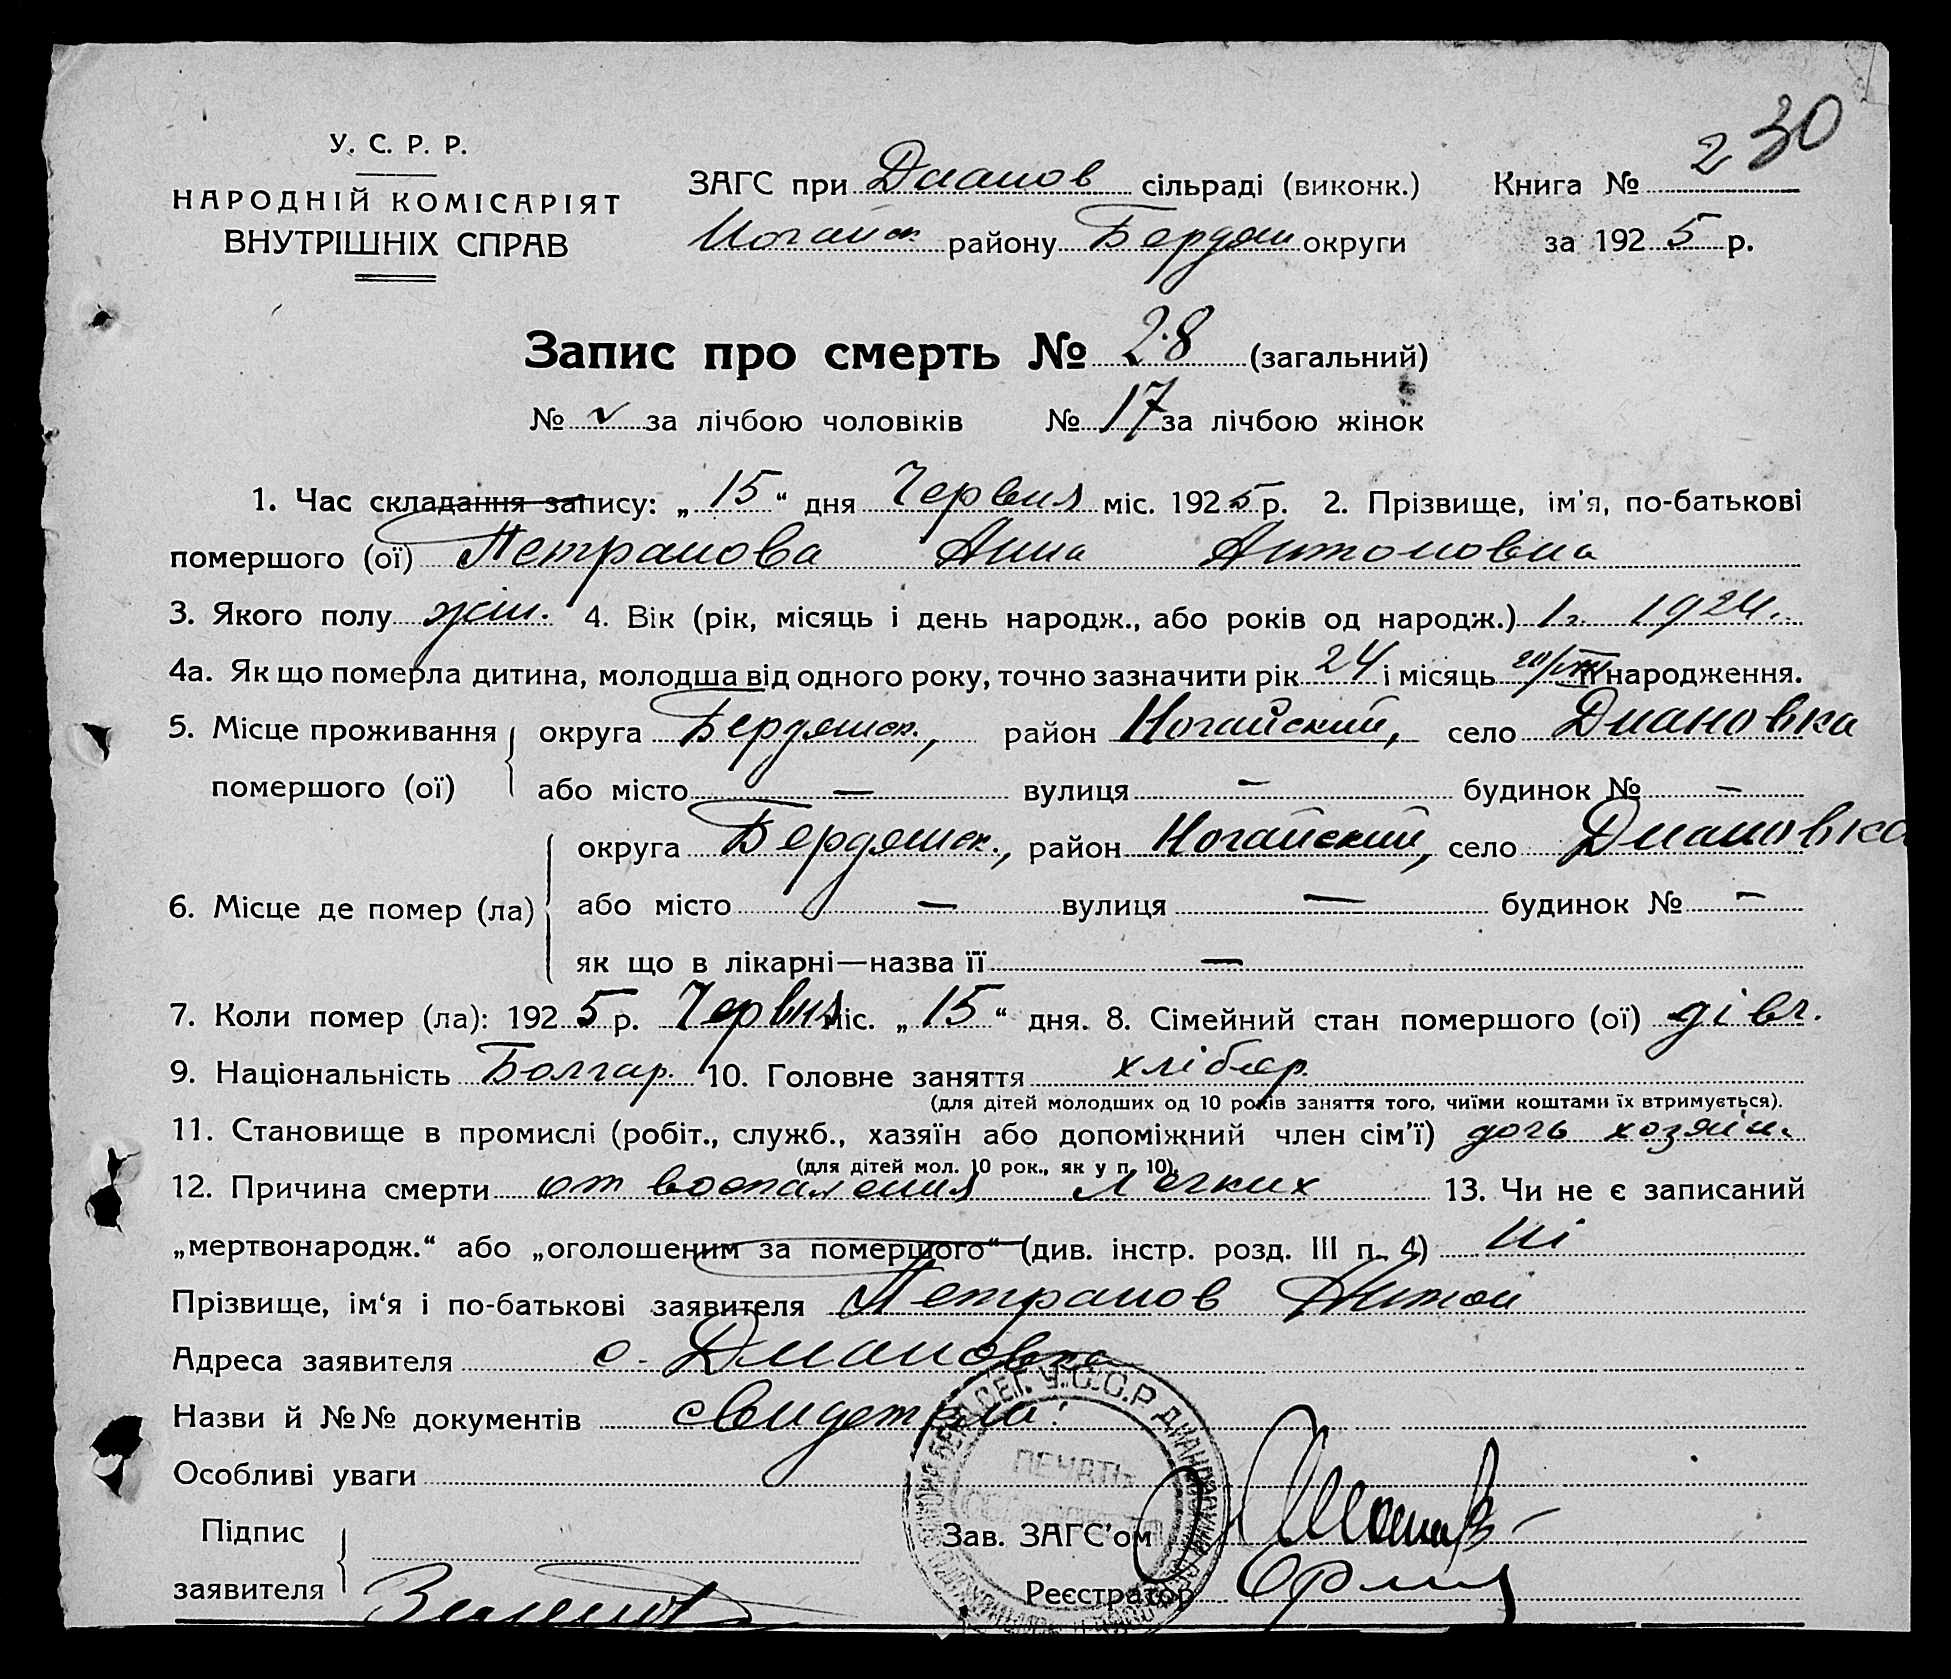 230
У. С. Р. Р.
НАРОДНІЙ КОМІСАРІЯТ
ВНУТРІШНІХ СПРАВ
ЗАГС при Дианов сільраді (виконк.) Книга №
Ногайск району Бердян округи за 1925 р.
Запис про смерть № 28 (загальний)
№ за лічбою чоловіків № 17 за лічбою жінок
1. Час складання запису: „15“ дня Червня міс. 1925 р. 2. Прізвище, ім'я, по-батькові
помершого (ої) Петранова Анна Антоновна
3. Якого полу жін. 4. Вік (рік, місяць і день народж., або років од народж.) 1 г. 1924.
4а. Як що померла дитина, молодша від одного року, точно зазначити рік 24 і місяць її народження.
5. Місце проживання округа Бердянск., район Ногайский, село Диановка
помершого (ої) або місто — вулиця — будинок № —
6. Місце де помер (ла) округа Бердянск., район Ногайский, село Диановка
або місто — вулиця — будинок № —
як що в лікарні—назва її —
7. Коли помер (ла): 1925 р. Червня міс. „15“ дня. 8. Сімейний стан помершого (ої) дівч.
9. Національність Болгар. 10. Головне заняття хлібор.
(для дітей молодших од 10 років заняття того, чиїми коштами їх втримується).
11. Становище в промислі (робіт., служб., хазяїн або допоміжний член сім'ї) дочь хозяин.
(для дітей мол. 10 рок., як у п. 10).
12. Причина смерти от воспаления Легких 13. Чи не є записаний
„мертвонародж.“ або „оголошеним за помершого“ (див. інстр. розд. III п. 4) ні
Прізвище, ім'я і по-батькові заявителя Петранов Антон
Адреса заявителя с. Диановка
Назви й №№ документів свидетели
Особливі уваги
Підпис
заявителя
Зав. ЗАГС'ом
Реєстратор
У.С.С.Р.
ПЕЧАТЬ